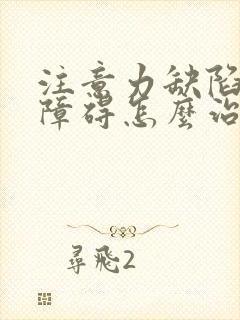 注意力缺陷
障碍怎麼治
尋飛2